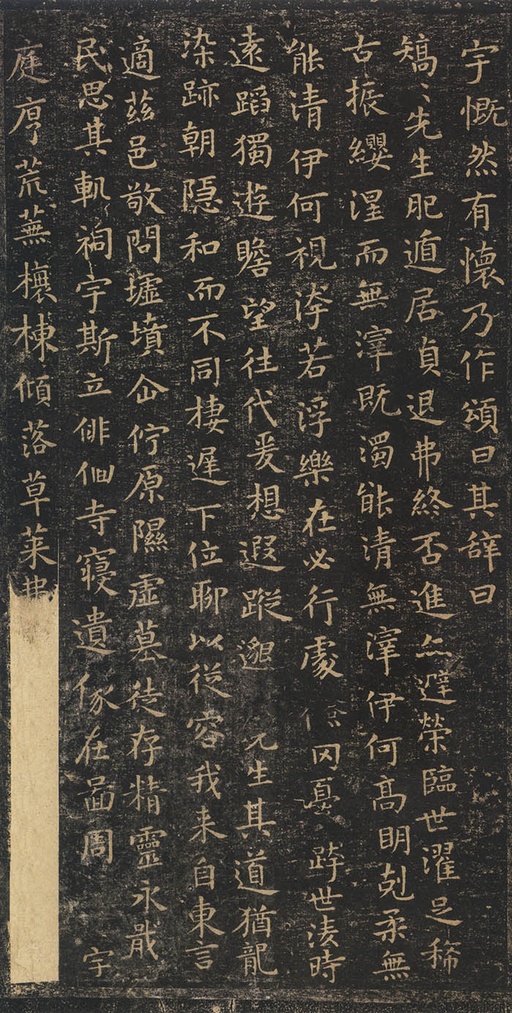 宇慨然有懷乃作頌曰其辞曰
矯〻先生肥遁居貞退弗終否進亦避榮臨世濯足稀
古振纓涅而無滓既濁能清無滓伊何高明剋柔無
能清伊何視洿若浮樂在必行處儉冈憂跨世淩時
遠蹈獨遊瞻望往代爰想遐蹤邈先生其道猶龍
染跡朝隐和而不同棲遲下位聊以從容我来自東言
適茲邑敬問墟墳企佇原隰虛墓徒存精靈永戢
民思其軌祠宇斯立俳佪寺寝遺像在啚周宇
庭序荒蕪榱棟傾落草莱弗